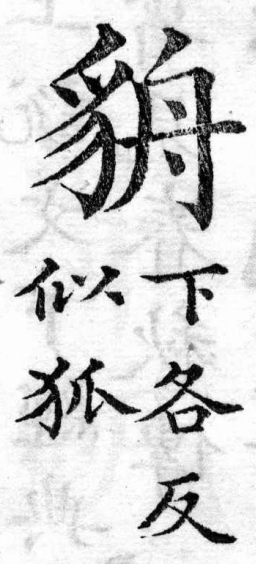 貈
下各反
似狐